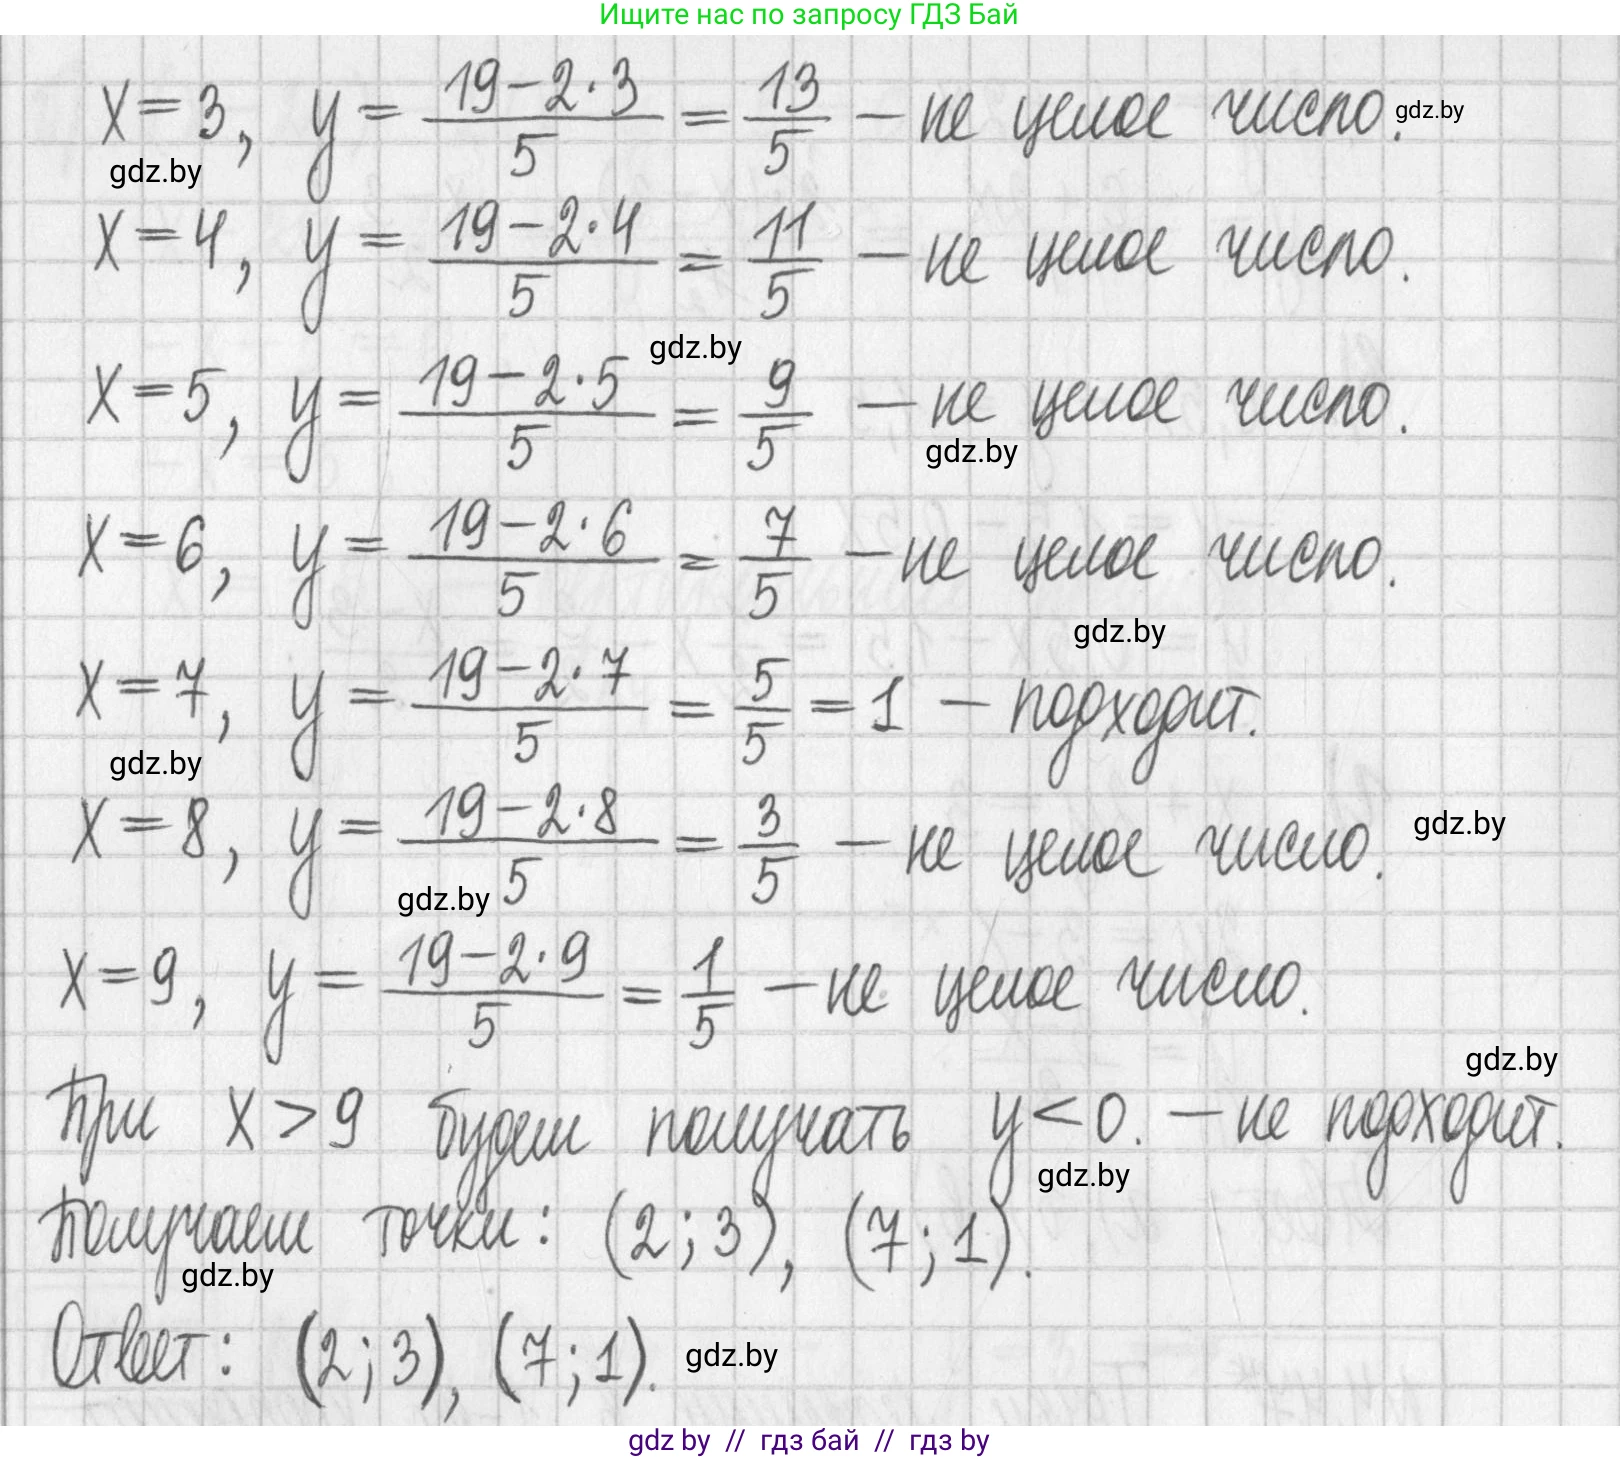 Ищите нас по запросу ГДЗ Бай
x=3, y = (19-2·3)/5 = 13/5 - не целое число. gdz.by
gdz.by
x=4, y = (19-2·4)/5 = 11/5 - не целое число.
gdz.by
x=5, y = (19-2·5)/5 = 9/5 - не целое число.
gdz.by
x=6, y = (19-2·6)/5 = 7/5 - не целое число.
gdz.by
x=7, y = (19-2·7)/5 = 5/5 = 1 - подходит.
gdz.by
x=8, y = (19-2·8)/5 = 3/5 - не целое число. gdz.by
gdz.by
x=9, y = (19-2·9)/5 = 1/5 - не целое число.
gdz.by
При x>9 будем получать y<0. - не подходит.
gdz.by
Получаем точки: (2;3), (7;1).
gdz.by
Ответ: (2;3), (7;1). gdz.by
gdz by // гдз бай // гдз by